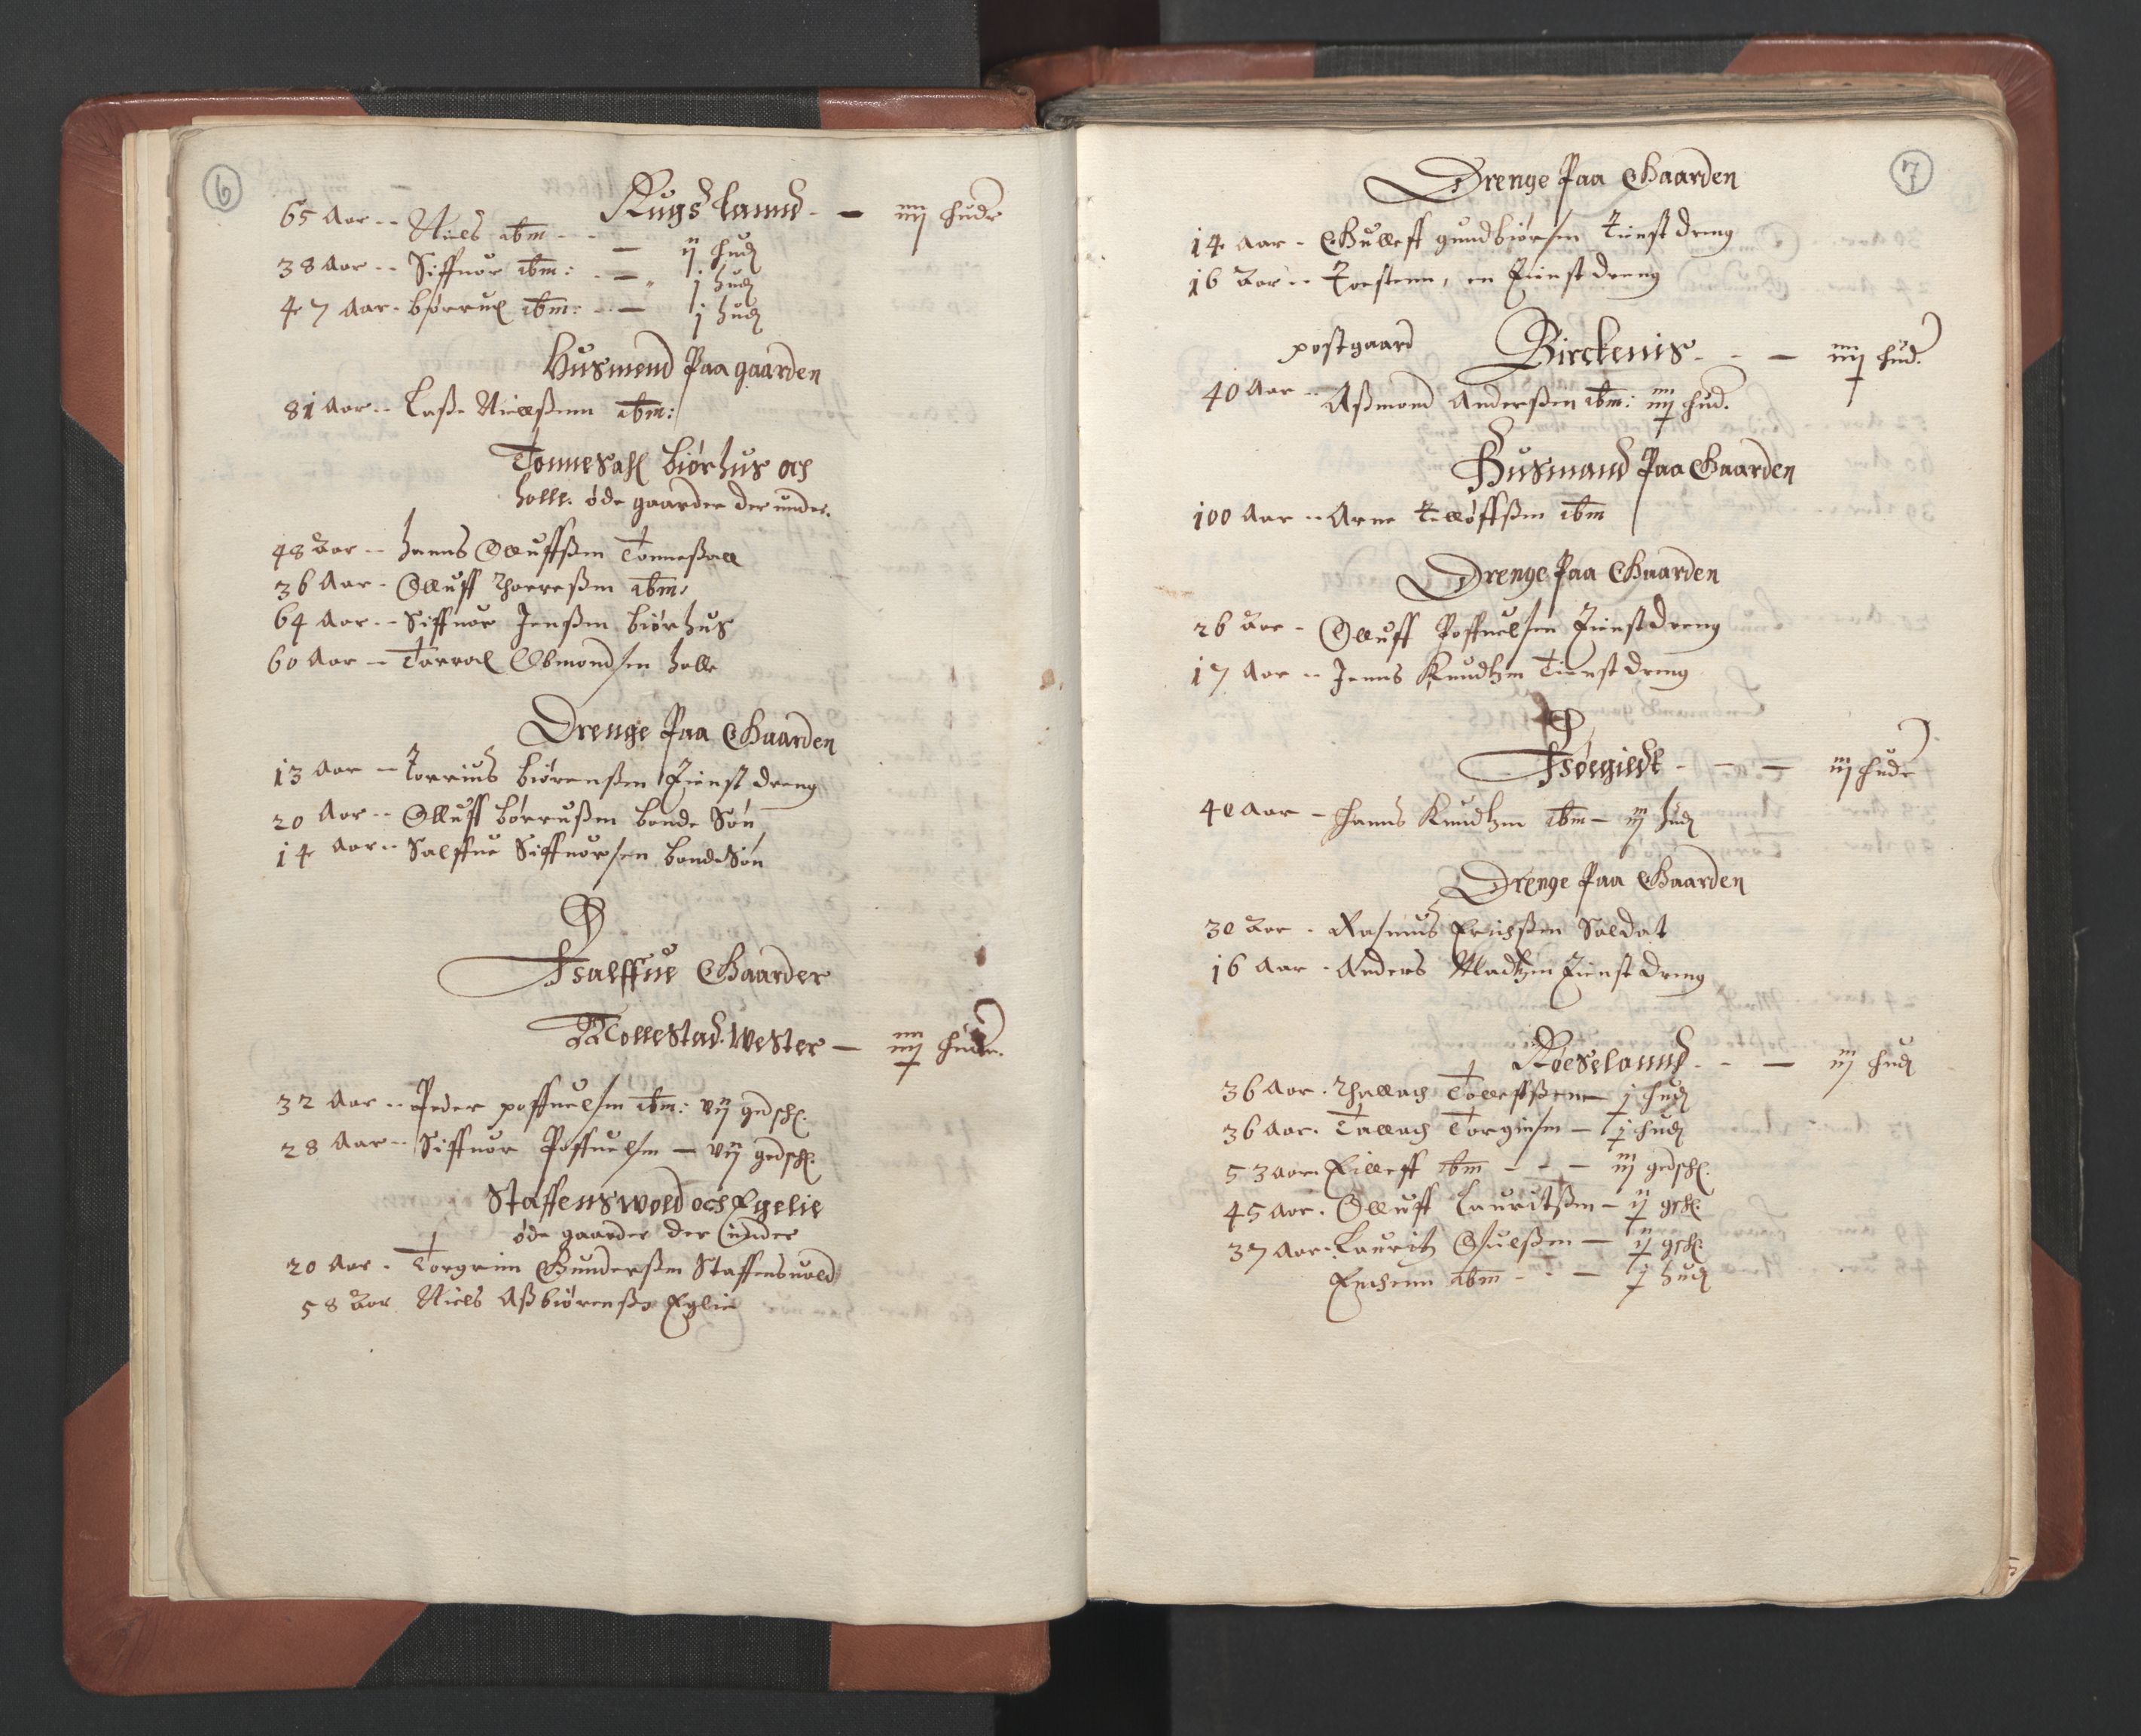 6
Rugslannd - - iiij huder
65 Aar -- Niels ibm - - ij hud
38 Aar -- Siffuor ibm: - - j hud
47 Aar - børruel ibm: - - j hud
Husmend Paa gaarden
81 Aar -- Laße Nielßenn ibm:
Tonnesahl biørhus och
holle. øde gaarder der under.
48 Aar -- hanns Olluffßen Tonneßall
36 Aar - Olluff ibm:
64 Aar -- Siffuor Jenßen biørhus
60 Aar -- Tarral Obmondsen holle
Drenge Paa Gaarden
13 Aar -- Torrius biørenßen Tienst dreng
20 Aar -- Olluff børrußen bonde Søn
14 Aar -- Salffue Siffuorsen bonde Søn
Halffue Gaarder
Mollestad. Wester — iiij huder.
32 Aar -- Peder poffuelsen ibm: vij gedsk.
28 Aar -- Siffuor Poffuelsen — vij gedsk.
Staffenswold och Egelie
øde gaarder der under
20 Aar - Torgrim Gunderßen Staffensuold
58 Aar Niels Aßbiørenßen Eglie
7
Drenge Paa Gaarden
14 Aar - Gulleff gundbiørsen tienst dreng
16 Aar -- Torstenn, en Tienst dreng
postgaard Birckenis - - — iiij hud.
40 Aar -- Aßmond Anderßen ibm: iiij hud.
Husmand Paa Gaarden
100 Aar -- ArneÆlløffßen ibm
Drenge Paa Gaarden
26 Aar - Olluff Poffuelsen Tienst dreng
17 Aar -- Jenns Knudtzen Tienst dreng
- - — iij huder
40 Aar - Hanns Knudtzen ibm — iij hud
Drenge Paa Gaarden
30 Aar - Rasmus Erichßen Soldat
16 Aar - Anders Madtzen Tienst dreng
Roeselannd - - — iij hud
36 Aar - Tølleffßenn — j hud
36 Aar. Tallach Torgiusen — j hud
53 Aar. Eilleff ibm - - — iij gedsk.
45 Aar. Olluff Lauritßen — ij gsk.
37 Aar. Lauritz — ij gsk.
Enchenn ibm - - — j hud